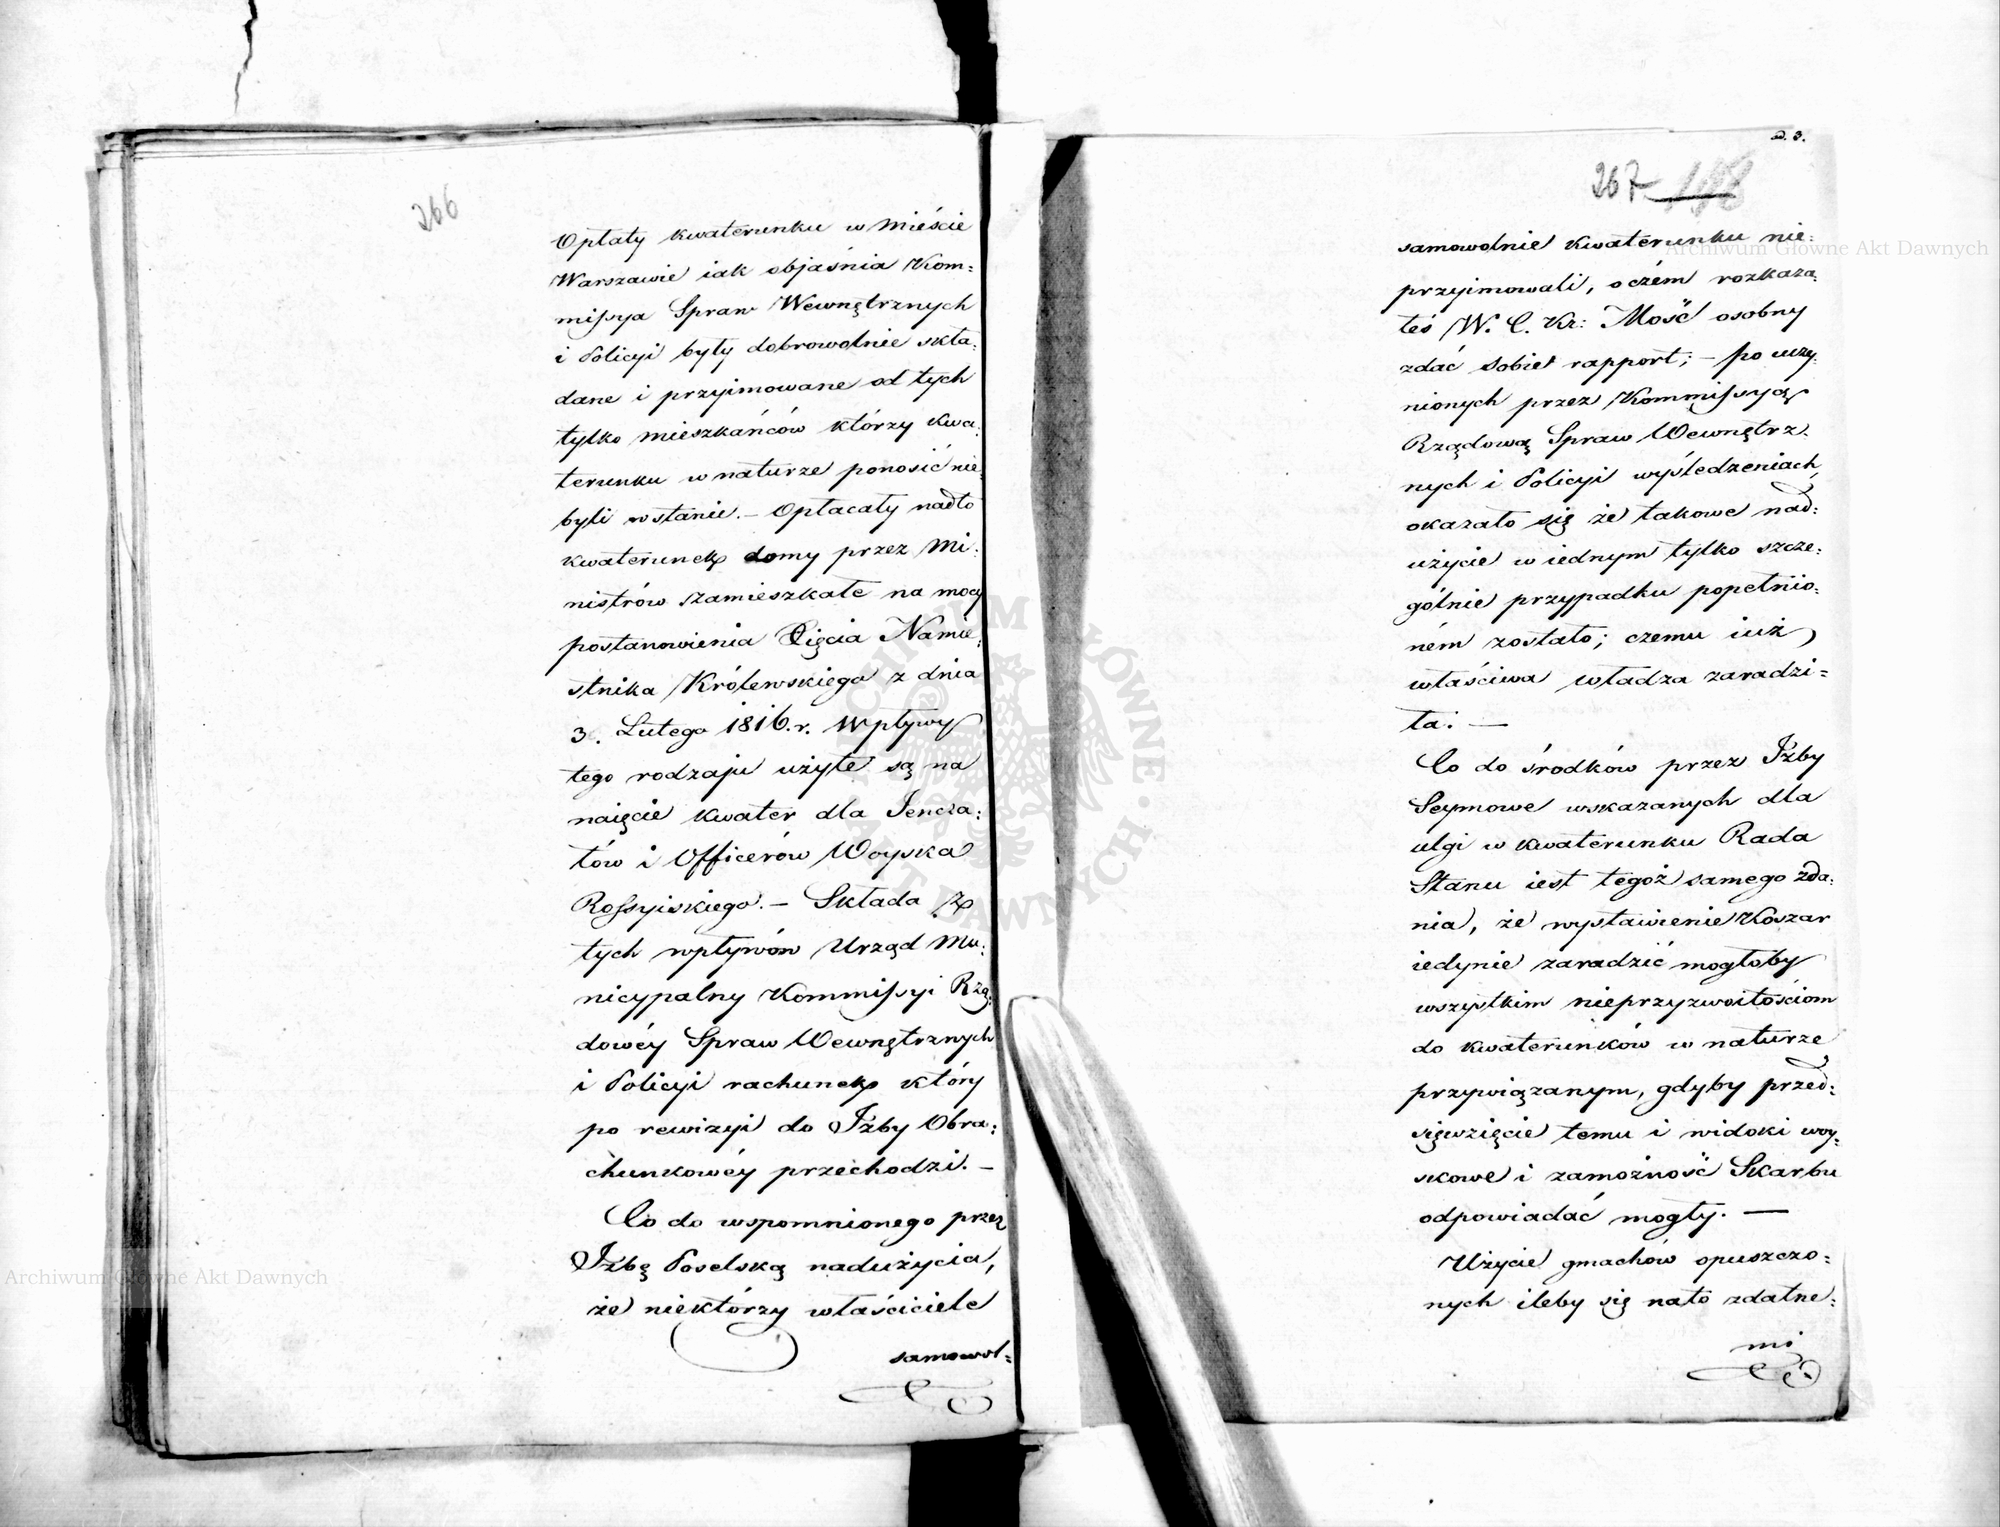 266
Opłaty kwaterunku w Mieście
Warszawie iak objaśnia Kom:
missya Spraw Wewnętrznych
i Policyi były dobrowolnie skła:
dane i przyimowane od tych
tylko mieszkańców którzy kwa:
terunku w naturze ponosić nie
byli w stanie. – Opłacały nadto
kwaterunek domy przez Mi:
nistrów zamieszkałe na mocy
postanowienia Xięcia Namie:
stnika Królewskiego z dnia
3. Lutego 1816. r. Wpływy
tego rodzaju użyte są na
naięcie kwater dla Jenera:
łów i Officerów Woyska
Rossyiskiego. – Składa z
tych wpływów Urząd Mu:
nicypalny Kommissyi Rzą:
dowéy Spraw Wewnętrznych
i Policyi rachunek który
po rewizyi do Izby Obra:
chunkowéy przechodzi. –
Co do wspomnionego przez
Izbę Poselską nadużycia,
że niektórzy właściciele
samowol:
267
samowolnie kwaterunku nie:
przyimowali, o czém rozkaza:
łeś W. C. Kr: Mość osobny
zdać sobie rapport; – po uczy:
nionych przez Kommissyą
Rządową Spraw Wewnętrz:
nych i Policyi wyśledzeniach,
okazało się że takowe nad:
użycie w iednym tylko szcze:
gólnie przypadku popełnio:
ném zostało; czemu iuż
właściwa władza zaradzi=
ła. —
Co do środków przez Izby
Seymowe wskazanych dla
ulgi w kwaterunku Rada
Stanu iest tegoż samego zda:
nia, że wystawienie Koszar
iedynie zaradzić mogłoby
wszystkim nieprzyzwoitościom
do kwaterunków w naturze
przywiązanym, gdyby przed:
sięwzięcie temu i widoki woy:
skowe i zamożność Skarbu
odpowiadać mogły. —
Użycie gmachów opuszczo:
nych ileby się na to zdatne:
mi
Archiwum Główne Akt Dawnych
Archiwum Główne Akt Dawnych
ARCHIWUM GŁÓWNE · AKT DAWNYCH ·